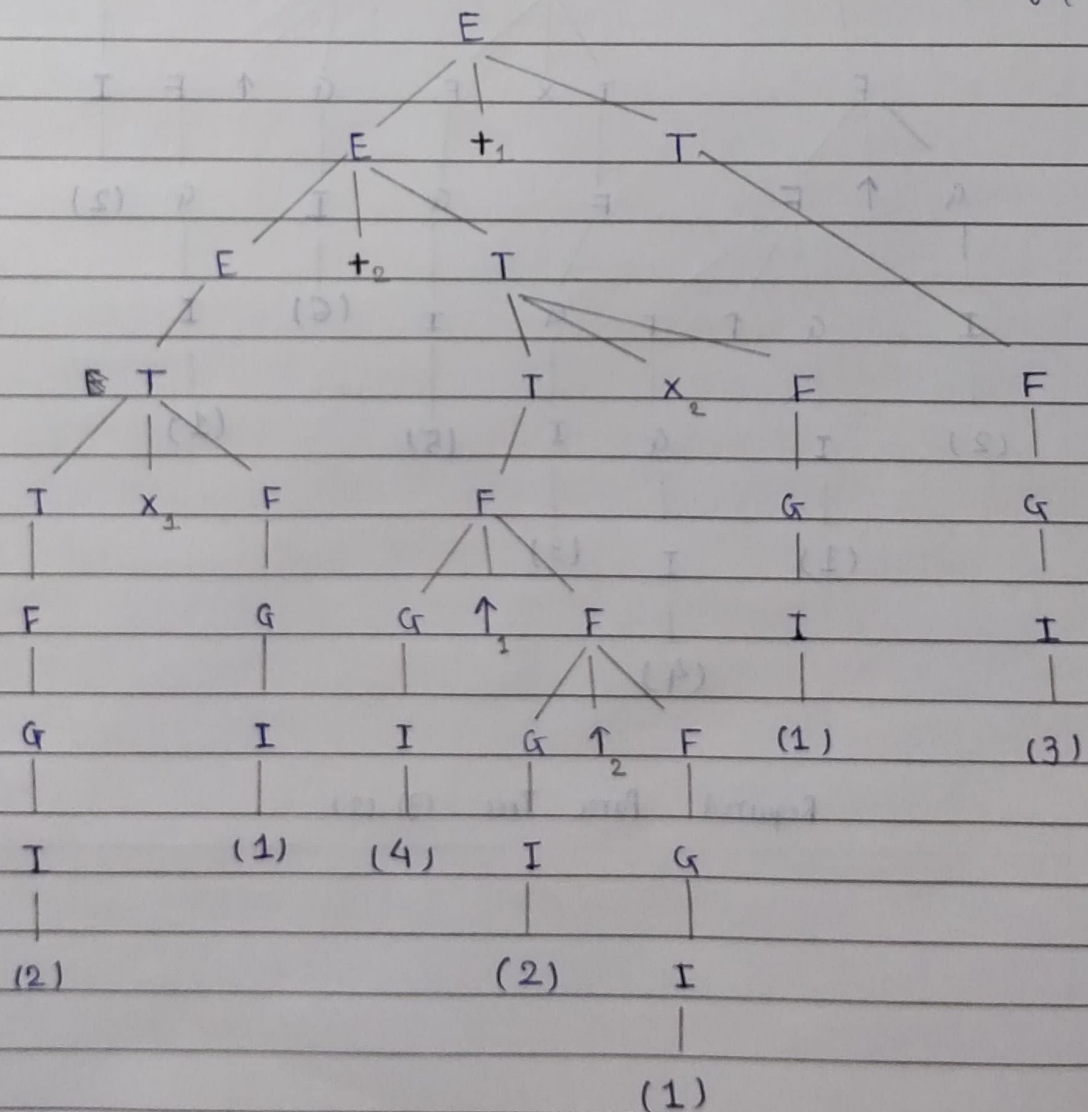 E
E +₁ T
E +₂ T
T T X₂ F F
T X₁ F F G G
F G G ↑₁ F I I
G I I G ↑₂ F (1) (3)
I (1) (4) I G
(2) (2) I
(1)